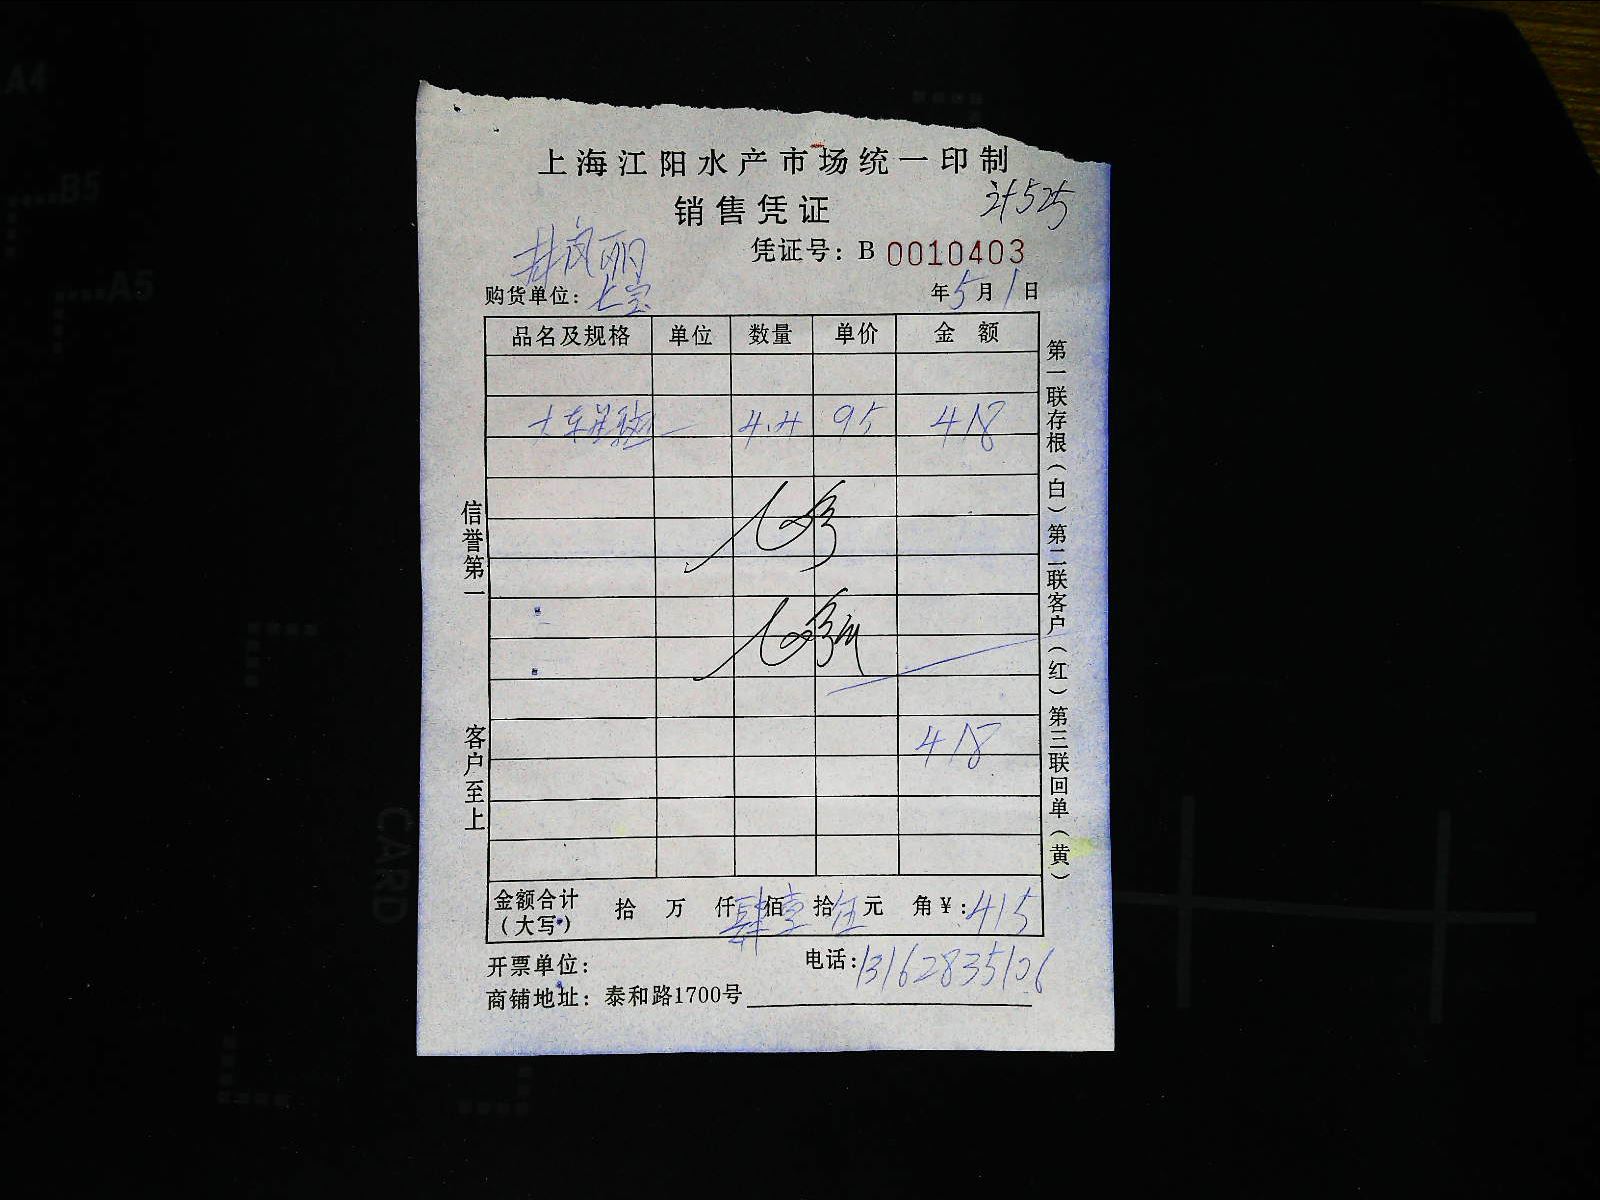 上海江阳水产市场统一印制
销售凭证
凭证号：B 0010403
购货单位：七宝
年5月1日
品名及规格 单位 数量 单价 金额
大东星斑 4.4 95 418
418
金额合计（大写） 拾 万 仟肆佰壹拾伍元 角¥：415
开票单位：
电话：13162835106
商铺地址：泰和路1700号
信誉第一 客户至上
第一联存根（白）第二联客户（红）第三联回单（黄）
A4
B5
A5
CARD